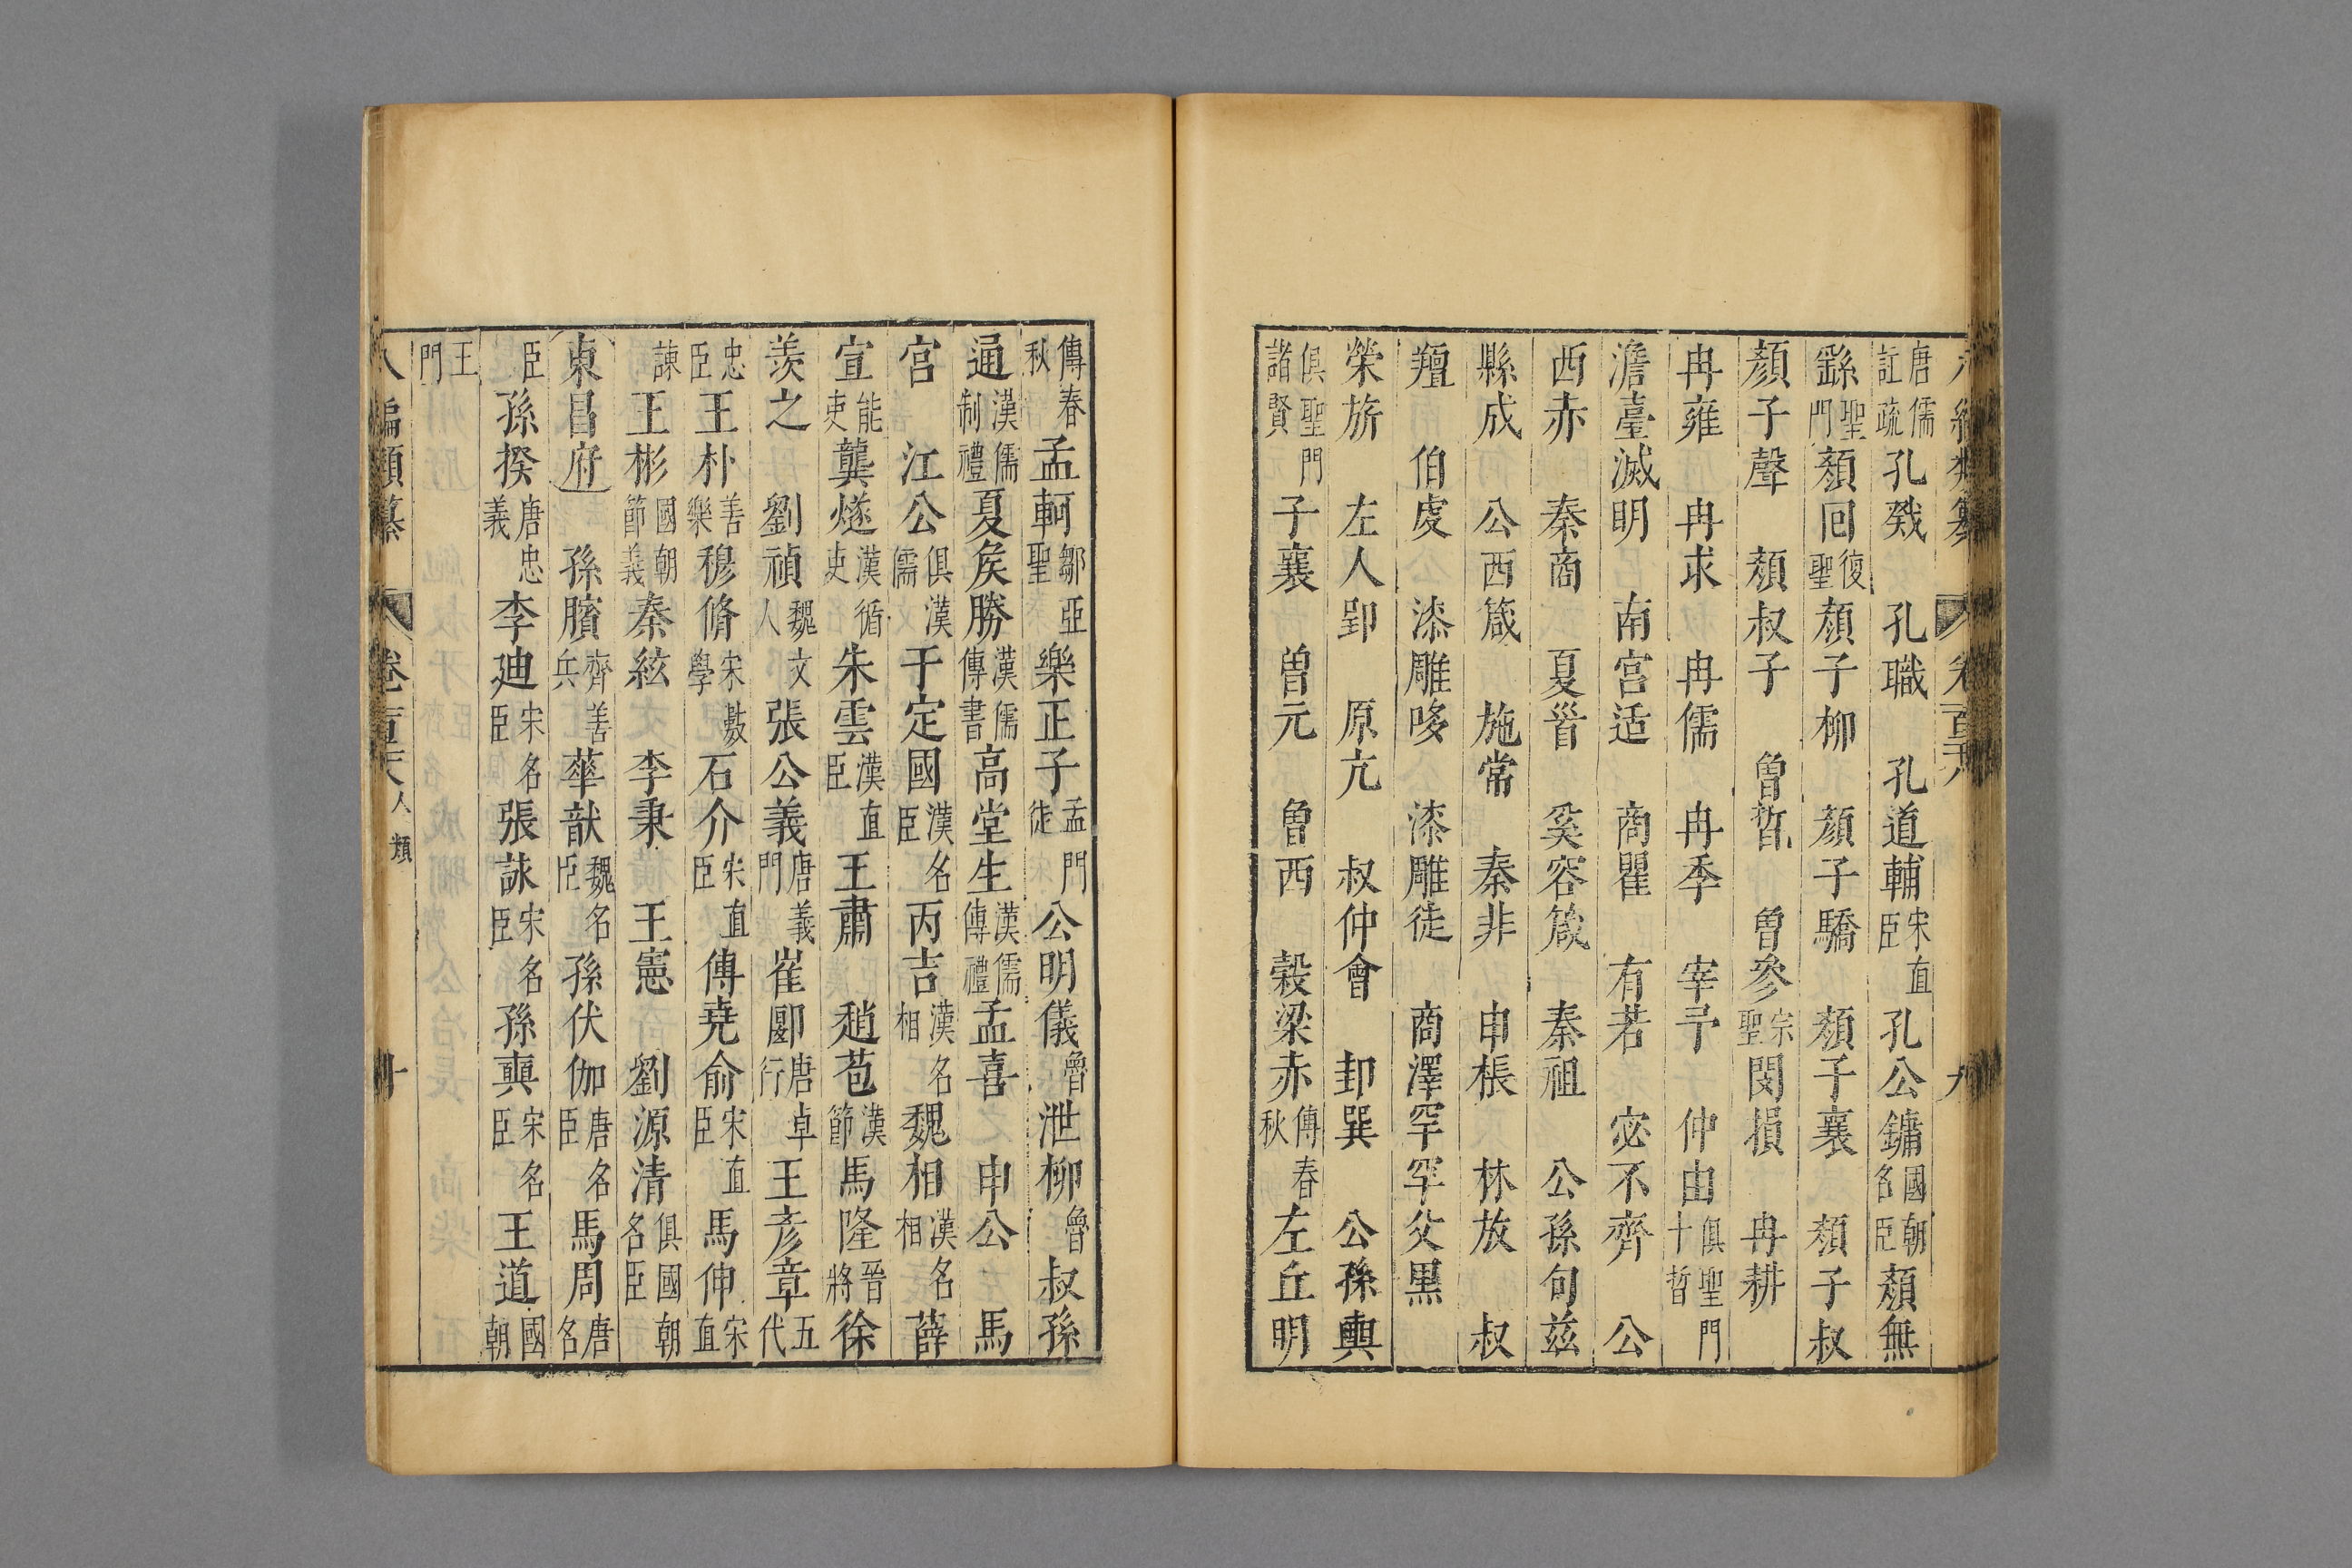 唐儒註疏孔戣 孔職 孔道輔宋直臣孔公鏞國朝名臣顏無
繇聖門顏回復聖顏子柳 顏子驕 顏子襄 顏子叔
顏子聲 顏叔子 曾晳 曾參宗聖閔損 冉耕
冉雍 冉求 冉儒 冉季 宰予 仲由俱聖門十哲
澹臺滅明 南宮适 商瞿 有若 宓不齊 公
西赤 秦商 夏晉 奚容箴 秦祖 公孫句茲
縣成 公西箴 施常 秦非 申棖 林放 叔
羶 伯虔 漆雕哆 漆雕徒 商澤罕罕父黑
榮旂 左人郢 原亢 叔仲會 邽巽 公孫輿
俱聖門諸賢子襄 曾元 曾西 穀梁赤傳春秋左丘明
傳春秋孟軻鄒亞聖樂正子孟門徒公明儀魯泄柳魯叔孫
通漢儒制禮夏侯勝漢儒傳書高堂生漢儒傳禮孟喜 申公 馬
宮 江公俱漢儒于定國漢名臣丙吉漢名相魏相漢名相薛
宣能吏龔燧漢循吏朱雲漢直臣王肅 趙苞漢節馬隆晉將徐
羨之 劉禎魏文人張公義唐義門崔郾唐卓行王彥章五代
忠臣王朴善樂穆脩宋數學石介宋直臣傅堯俞宋直臣馬伸宋直
諫王彬國朝節義秦紘 李秉 王憲 劉源清俱國朝名臣
東昌府 孫臏齊善兵華歆魏名臣孫伏伽唐名臣馬周唐名
臣孫揆唐忠義李迪宋名臣張詠宋名臣孫奭宋名臣王道國朝
王門
八編類纂 卷一百六 人類 十